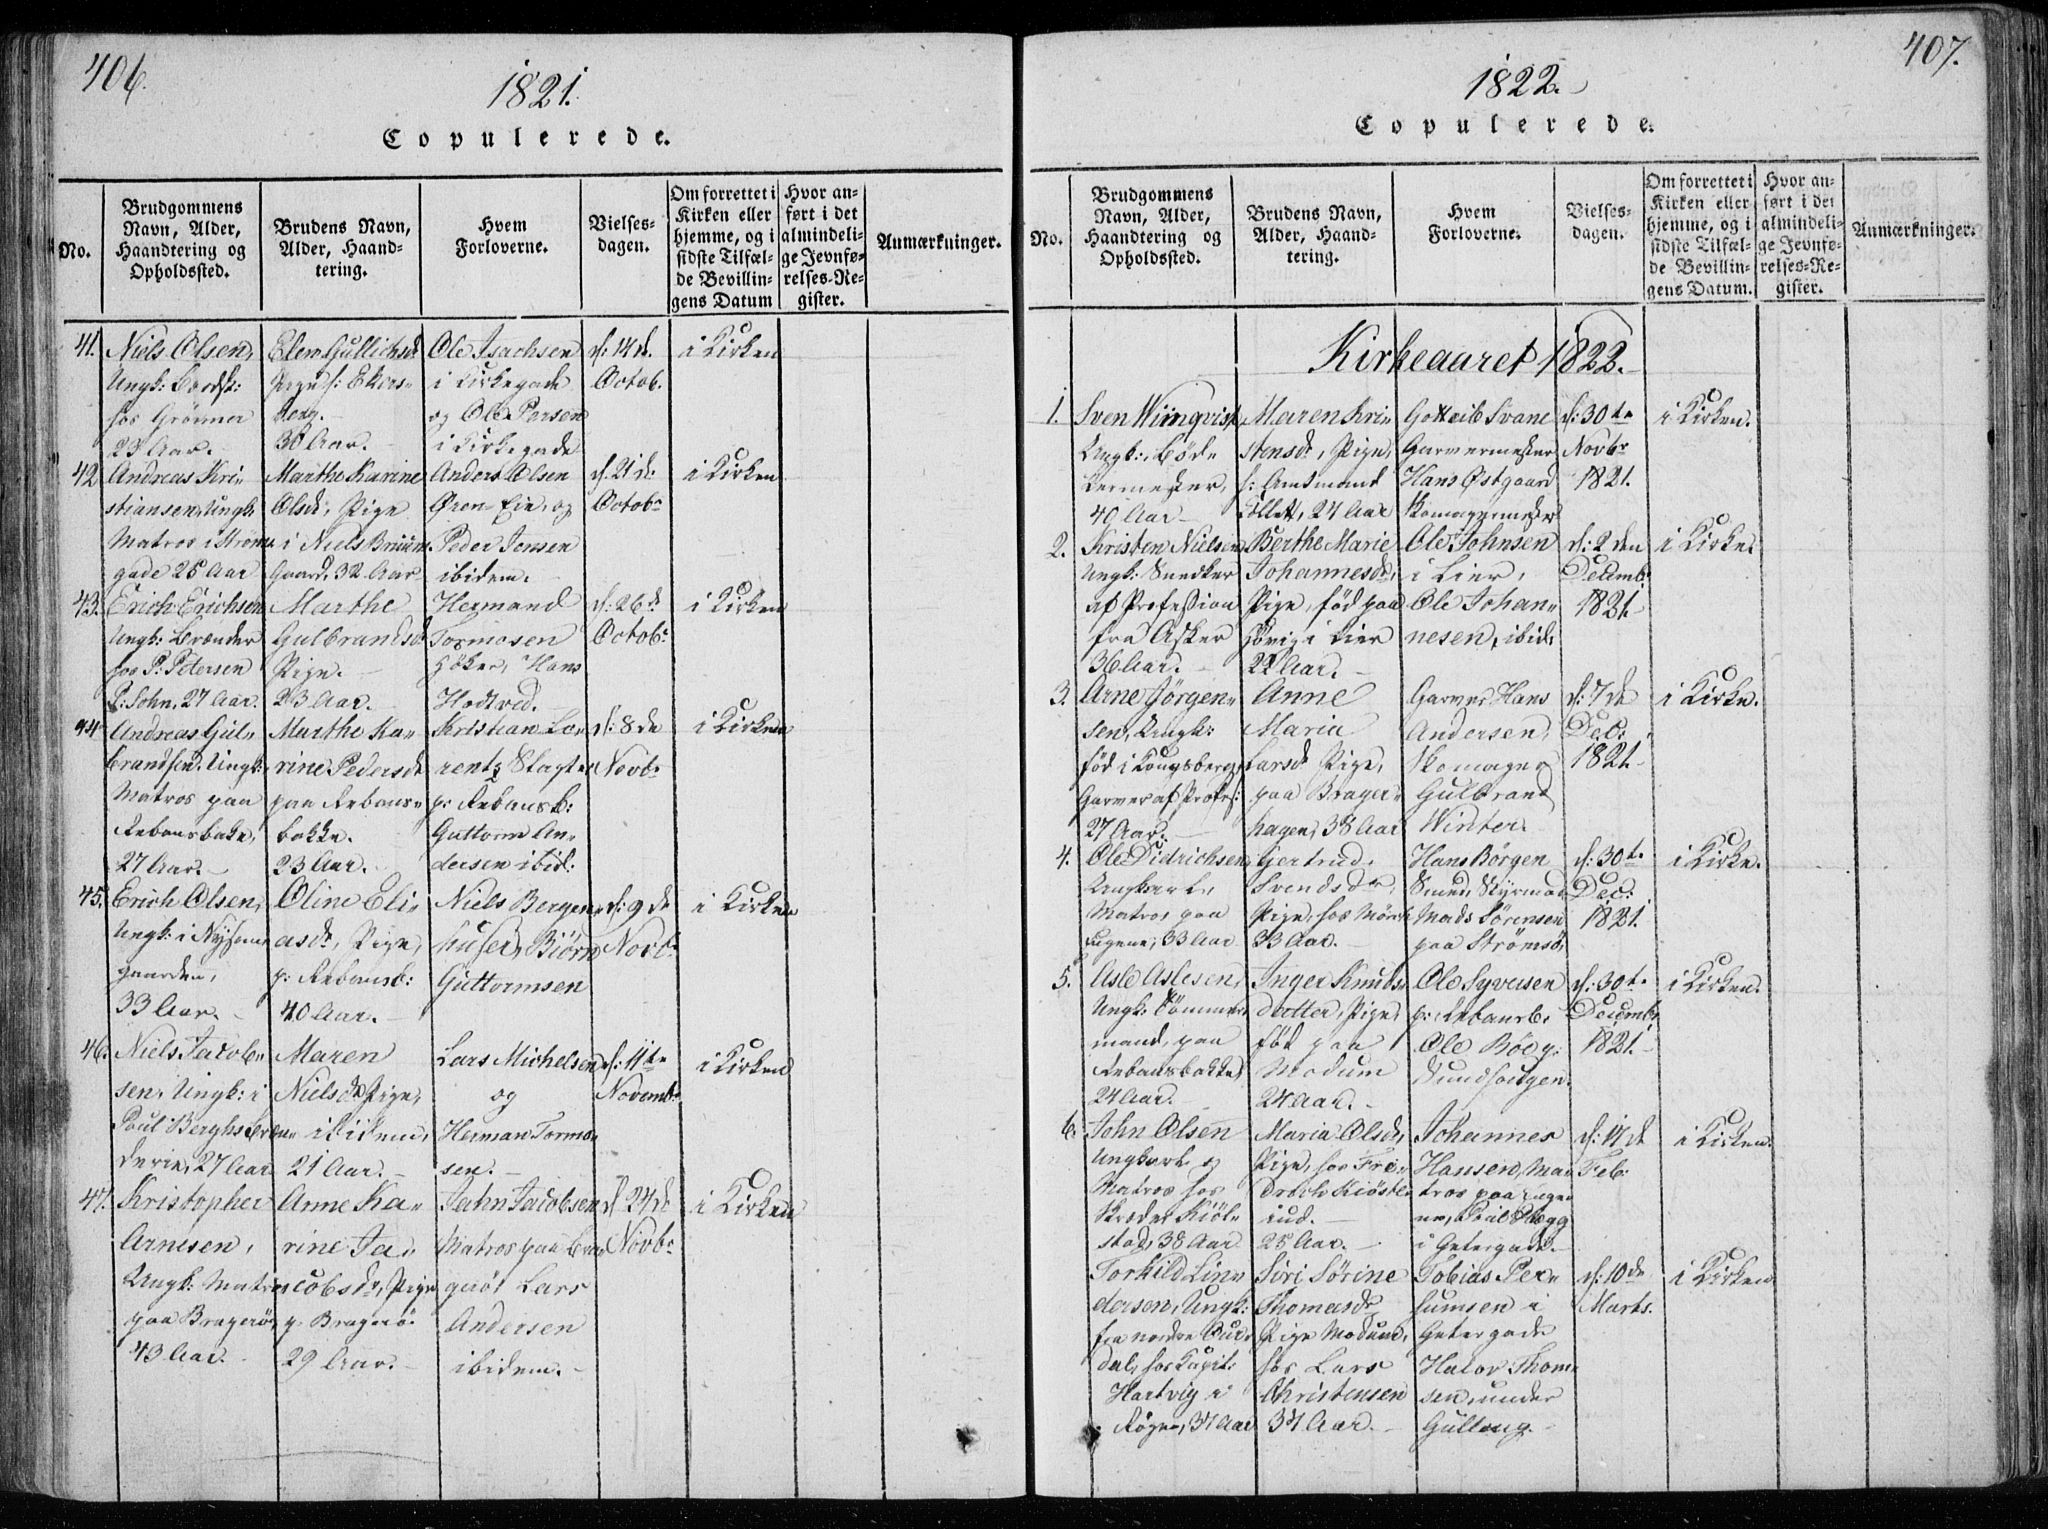 406.
1821.
Copulerede.
No.
Brudgommens
Navn, Alder,
Haandtering og
Opholdssted.
Brudens Navn,
Alder, Haand-
tering.
Hvem
Forloverne.
Vielses-
dagen.
Om forrettet i
Kirken eller
hjemme, og i
sidste Tilfæl-
de Bevillin-
gens Datum
Hvor an-
ført i det
almindeli-
ge Jevnfø-
relses-Re-
gister.
Anmærkninger.
41.
Niels Olsen,
Ungk:
hos Grönner
23 Aar.
Gullichsdr
Pige
berg.
30 Aar.
Ole Isachsen
i Kirkegade
og Ole Persen
i Kirkegade
d: 14de
Octob.
i Kirken
42
Andreas Kri-
stiansen, Ungk:
Matros i Ströms-
gade 25 Aar
Marthe Karine
Olsdr, Pige
i Niels Bruun
Gaard, 32 Aar
Anders Olsen
Øren-Eie, og
Peder Jensen
ibidem.
d. 21de
Octobr
i Kirken
43.
Erich Erichsen
Ungk: Brænder
hos P: Petersen
& Sohn, 27 Aar.
Marthe
Gulbrandsdr
Pige.
23 Aar.
Hermand
Tormosen
Höker, Hans
Hodtved.
d: 26de
Octobr
i Kirken
44
Andreas Gul-
brandsen, Ungk:
Matros paa
Rebansbake,
27 Aar.
Marthe Ka-
rine Pedersdr
paa Rebans-
bakke.
23 Aar.
Kristian Lo-
rentz Slagter
p: Rebansb:
Guttorm An-
dersen ibid:
d: 8de
Novbr
i Kirken
45.
Erich Olsen,
Ungk: i
gaarden,
33 Aar.
Oline Eli-
asdr, Pige,
p: Rebansb:
40 Aar.
Niels Bergen-
huser, Biörn
Guttormsen
d: 9de
Novbr
i Kirken
46.
Niels Jacob-
sen, Ungk: i
Poul Berghs Bræn-
derie, 27 Aar
Maren
Nielsdr Pige,
ibidem,
21 Aar.
Lars Michelsen
og
Herman Tormo-
sen.
d: 11te
Novembr
i Kirken
47.
Kristopher
Arnesen,
Ungk: Matros
paa Bragerö,
43 Aar.
Anne Ka-
rine Ja-
cobsdr, Pige
p. Bragerö.
29 Aar.
Jahn Jacobsen
Matros paa Bra-
geröe Lars
Andersen
ibidem.
d 24de
Novbr
i Kirken
407.
1822.
Copulerede.
No.
Brudgommens
Navn, Alder,
Haandtering og
Opholdssted.
Brudens Navn,
Alder, Haand-
tering.
Hvem
Forloverne.
Vielses-
dagen.
Om forrettet i
Kirken eller
hjemme, og i
sidste Tilfæl-
de Bevillin-
gens Datum.
Hvor an-
ført i det
almindeli-
ge Jevnfø-
relses-Re-
gister.
Anmærkninger.
Kirkeaaret 1822.
1.
Sven Wiinqvist
Ungk:, Böd-
kermester,
40 Aar
Maren Kri-
stensdr, Pige,
h: Amtmand
Collett, 24 Aar
Gottlieb Svane
Garvermester
Hans Østgaard
Skomagermester
d: 30te
Novbr
1821.
i Kirken.
2.
Kristen Nielsen
Ungk: Snedker
af Profession
fra Asker
36 Aar.
Berthe Marie
Johannesdr,
Pige, föd paa
Hövig i Lier
22 Aar.
Ole Johnsen
i Lier,
Ole Johan-
nesen, ibid:
d: 2den
Decemb:
1821.
i Kirke.
3.
Arne Jörgen-
sen, Ungk:
föd i Kongsberg,
Garver af Profes:
27 Aar.
Anne
Maria
Larsdr Pige,
paa Brager-
hagen, 38 Aar
Garver Hans
Andersen,
Skomager
Gulbrand
Winter.
d: 7de
Dec:
1821.
i Kirke.
4.
Ole Didrichsen,
Ungkarl,
Matros paa
Tugene, 33 Aar
Gertrud
Svendsdr,
Pige, hos Mörch
33 Aar.
Hans Börgen
Smed, Styrmand
Mads Sörensen
paa Strömsö,
d: 30te
Dec:
1821.
i Kirke.
5.
Asle Aslesen,
Ungk: Tömmer-
mand, paa
Rebansbakke,
24 Aar.
Inger Knuds-
dotter, Pige,
föd paa
Modum
24 Aar.
Ole Syversen
p: Rebansb.
Ole Böe p:
Sundhougen.
d: 30te
Decemb:
1821.
i Kirken.
6.
John Olsen
Ungkarl og
Matros hos
Skreder Kiöl-
stad, 38 Aar
Maria Olsdr,
Pige, hos Fri-
drich Kiöste-
rud.
25 Aar.
Johannes
Hansen, Ma-
tros paa Tuge-
ne, Poul Plegg
i Getergade.
d: 14de
Feb:
i Kirken.
Torkild Lin-
dersen, Ungk:
fra nordre Our-
dal, hos Capit:
Hartvig i
Röyen, 37 Aar
Siri Sörine
Thomasdr
Pige Modum,
hos Lars
Christensen
34 Aar.
Tobias Per-
humsen i
Getergade
Halvor Thom-
sen, under
Gulloug.
d: 10de
Marts.
i Kirken